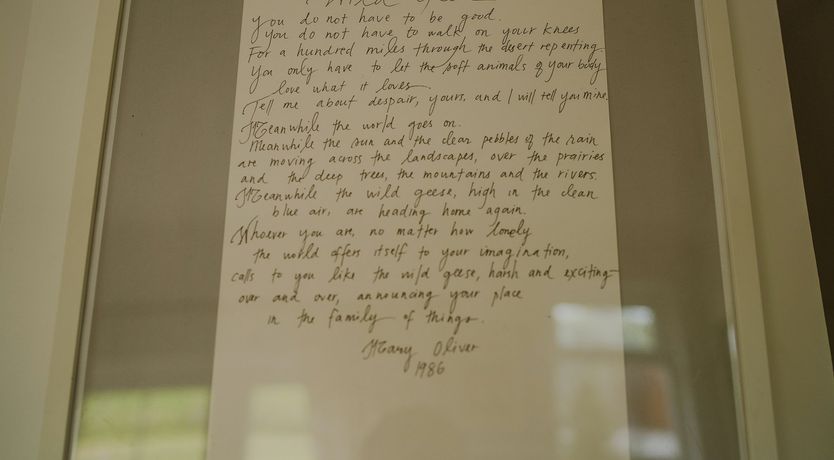 Wild Geese
You do not have to be good.
You do not have to walk on your knees
For a hundred miles through the desert repenting.
You only have to let the soft animals of your body
love what it loves.
Tell me about despair, yours, and I will tell you mine.
Meanwhile the world goes on.
Meanwhile the sun and the clear pebbles of the rain
are moving across the landscapes, over the prairies
and the deep trees, the mountains and the rivers.
Meanwhile the wild geese, high in the clean
blue air, are heading home again.
Whoever you are, no matter how lonely
the world offers itself to your imagination,
calls to you like the wild geese, harsh and exciting-
over and over, announcing your place
in the family of things.
Mary Oliver
1986